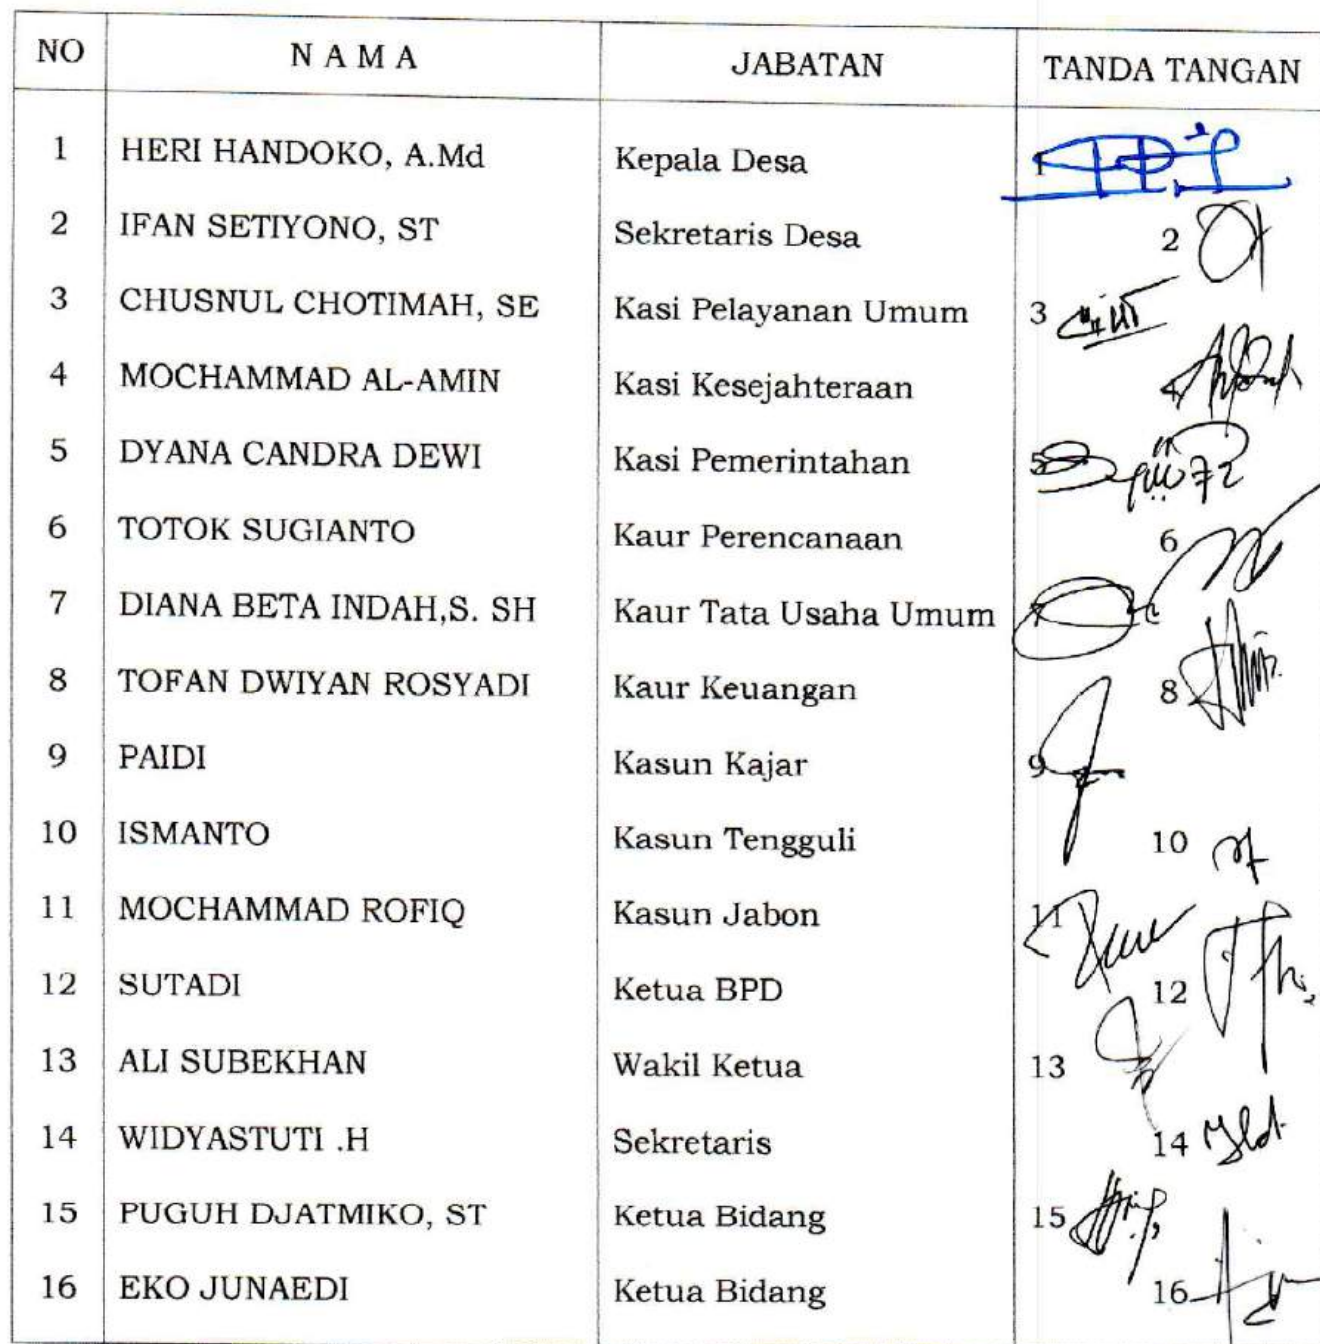 NO N A M A JABATAN TANDA TANGAN
1 HERI HANDOKO, A.Md Kepala Desa 1
2 IFAN SETIYONO, ST Sekretaris Desa 2
3 CHUSNUL CHOTIMAH, SE Kasi Pelayanan Umum 3
4 MOCHAMMAD AL-AMIN Kasi Kesejahteraan 4
5 DYANA CANDRA DEWI Kasi Pemerintahan 5
6 TOTOK SUGIANTO Kaur Perencanaan 6
7 DIANA BETA INDAH,S. SH Kaur Tata Usaha Umum 7
8 TOFAN DWIYAN ROSYADI Kaur Keuangan 8
9 PAIDI Kasun Kajar 9
10 ISMANTO Kasun Tengguli 10
11 MOCHAMMAD ROFIQ Kasun Jabon 11
12 SUTADI Ketua BPD 12
13 ALI SUBEKHAN Wakil Ketua 13
14 WIDYASTUTI .H Sekretaris 14
15 PUGUH DJATMIKO, ST Ketua Bidang 15
16 EKO JUNAEDI Ketua Bidang 16